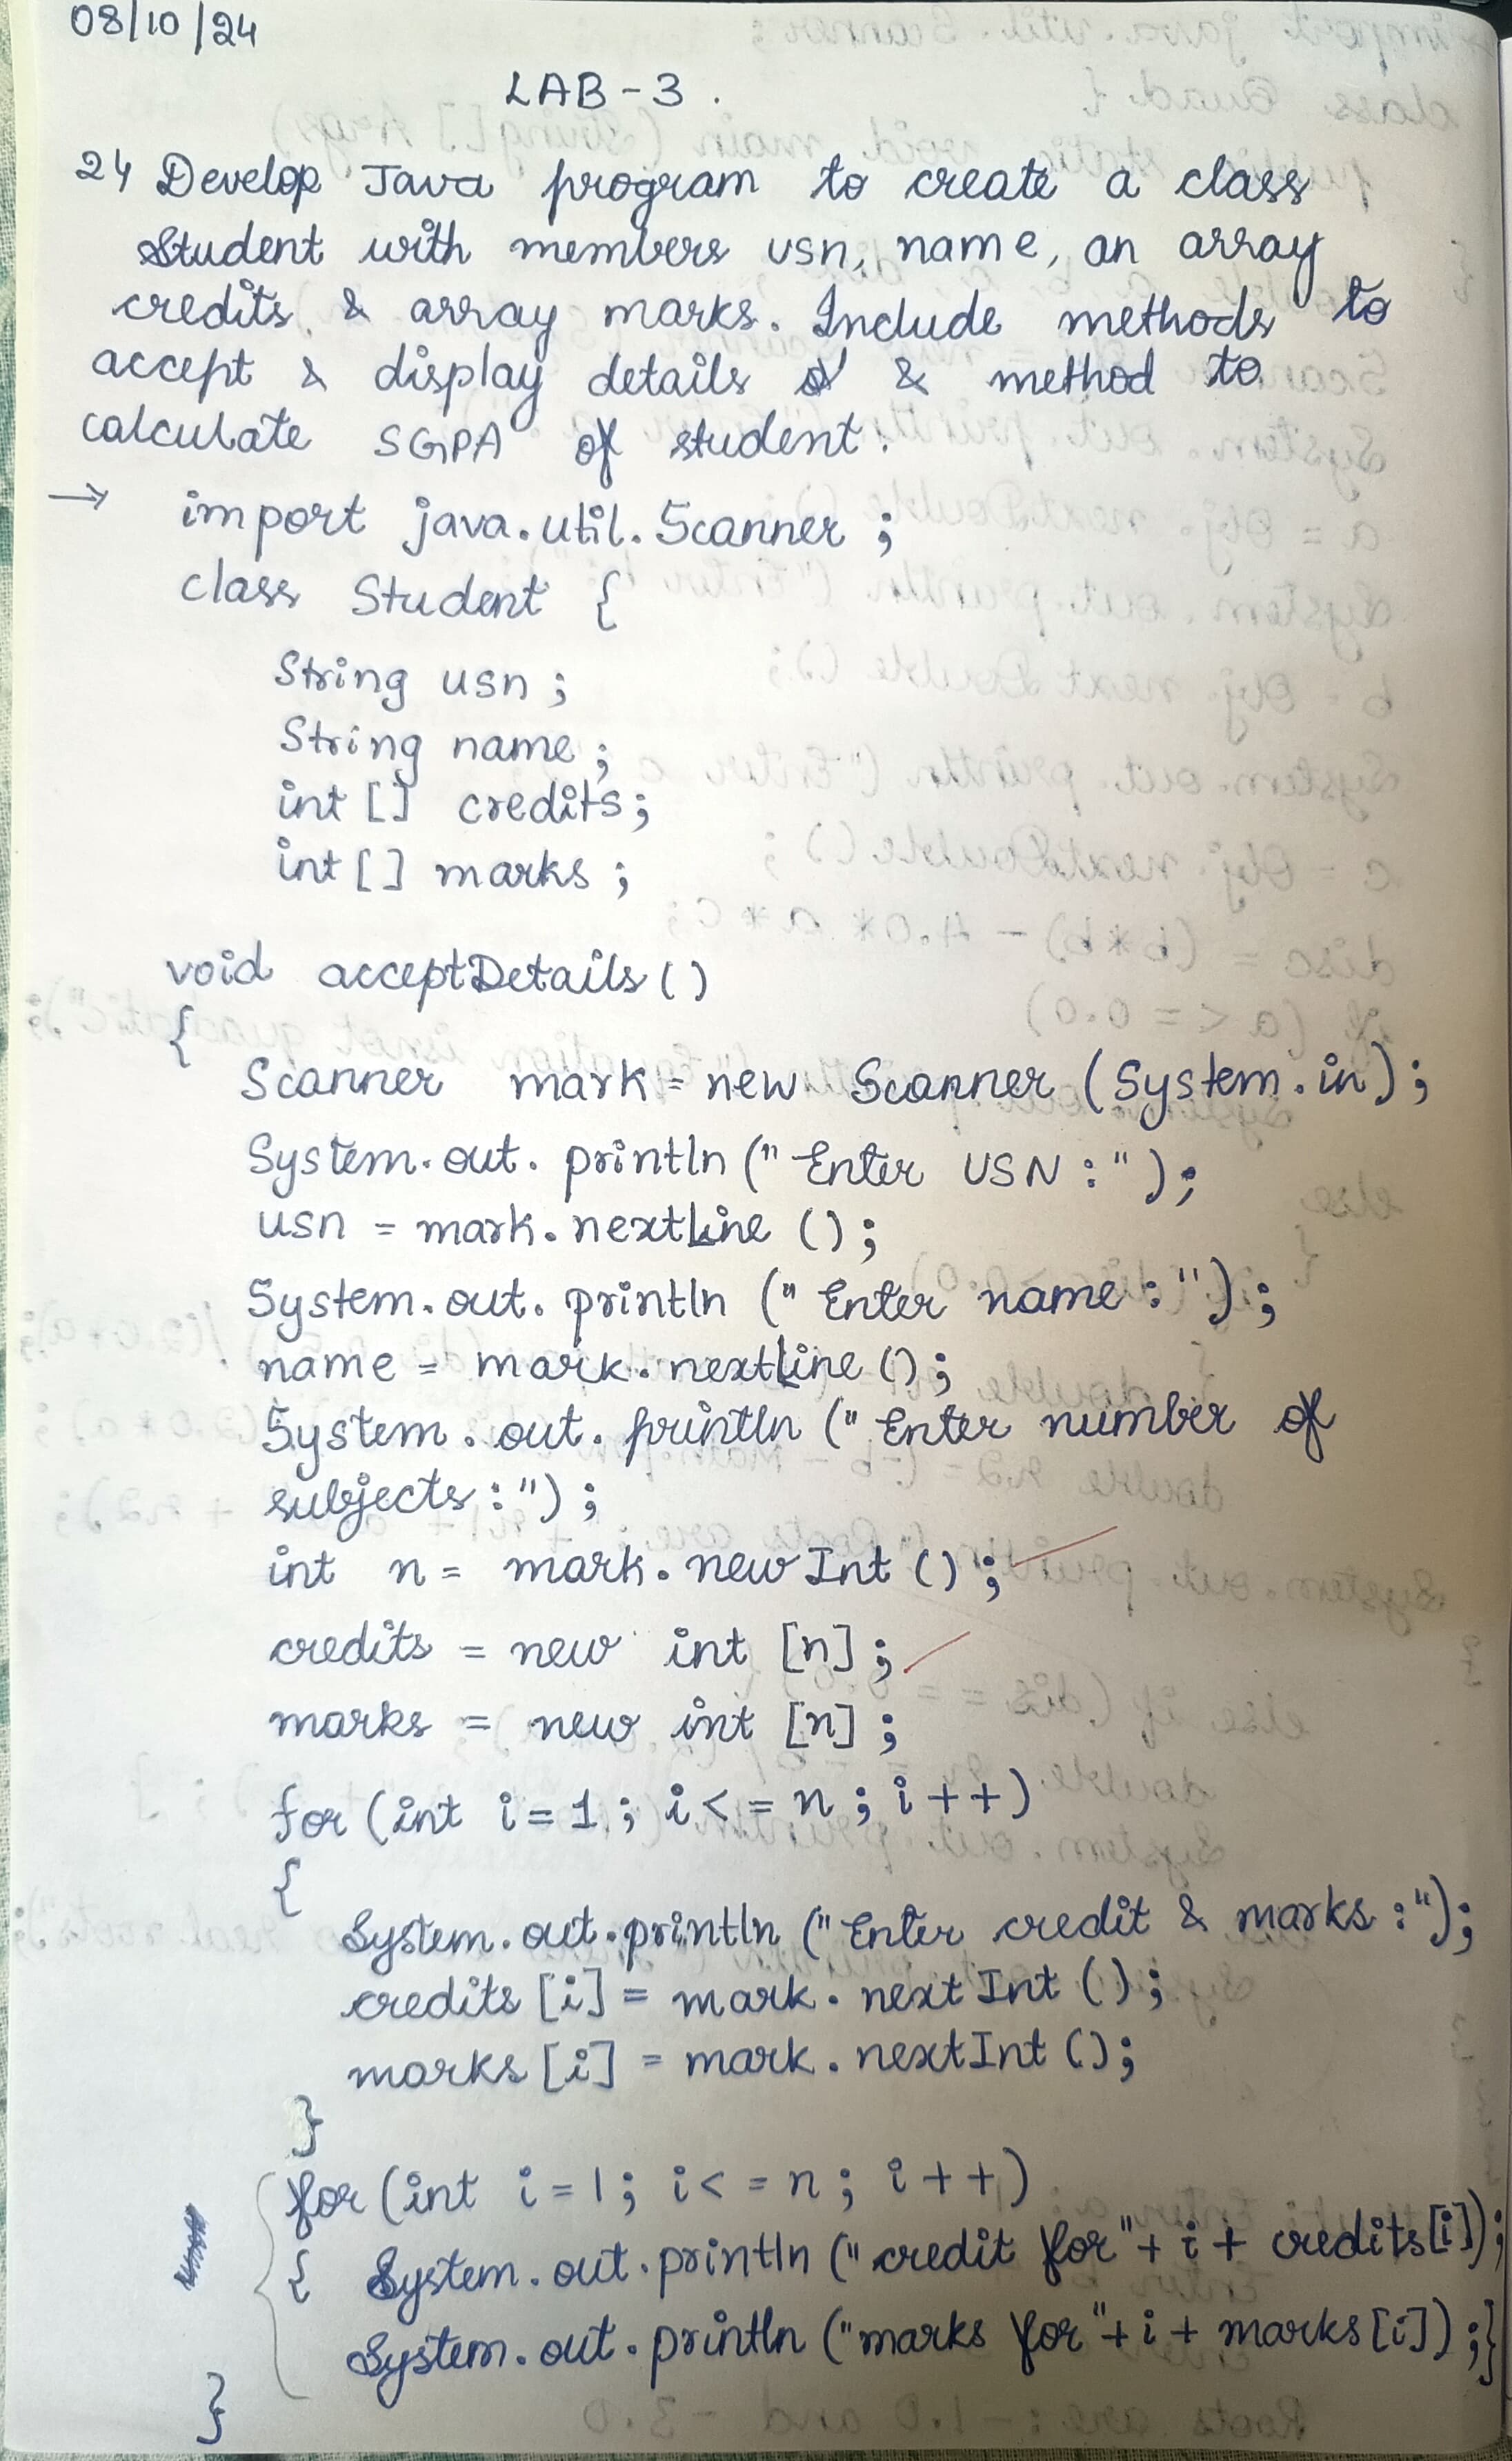 08/10/24
LAB-3.
24 Develop Java program to create a class
Student with members usn, name, an array
credits & array marks. Include methods to
accept & display details & method to
calculate SGPA of student.
→ import java.util.Scanner ;
class Student {
String usn ;
String name ;
int [] credits ;
int [] marks ;
void acceptDetails ()
{
Scanner mark = new Scanner (System.in) ;
System.out.println (" Enter USN : ") ;
usn = mark.nextLine () ;
System.out.println (" Enter name : ") ;
name = mark.nextLine () ;
System.out.println (" Enter number of
subjects : ") ;
int n = mark.newInt () ;
credits = new int [n] ;
marks = new int [n] ;
for (int i = 1 ; i <= n ; i ++)
{
System.out.println (" Enter credit & marks : ") ;
credits [i] = mark.nextInt () ;
marks [i] = mark.nextInt () ;
}
for (int i = 1 ; i <= n ; i ++)
{ System.out.println (" credit for" + i + credits[i]) ;
System.out.println ("marks for" + i + marks [i]) ; }
}